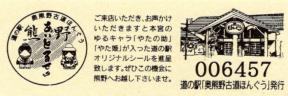 道の駅 奥熊野古道ほんぐう
熊野
ご来店いただき、お声かけ
いただきますと本宮の
ゆるキャラ「やたの助」
「やた姫」が入った道の駅
オリジナルシールを進呈
致します。ぜひこの機会に
熊野へお越し下さいませ。
006457
道の駅「奥熊野古道ほんぐう」発行